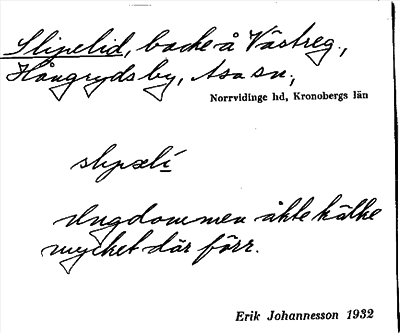 Slipelid, backe å Västreg.,
Hångryds by, Asa sn,
Norrvidinge hd, Kronobergs län
slipəlí
Ungdommen åkte kälke
mycket där förr.
Erik Johannesson 1932